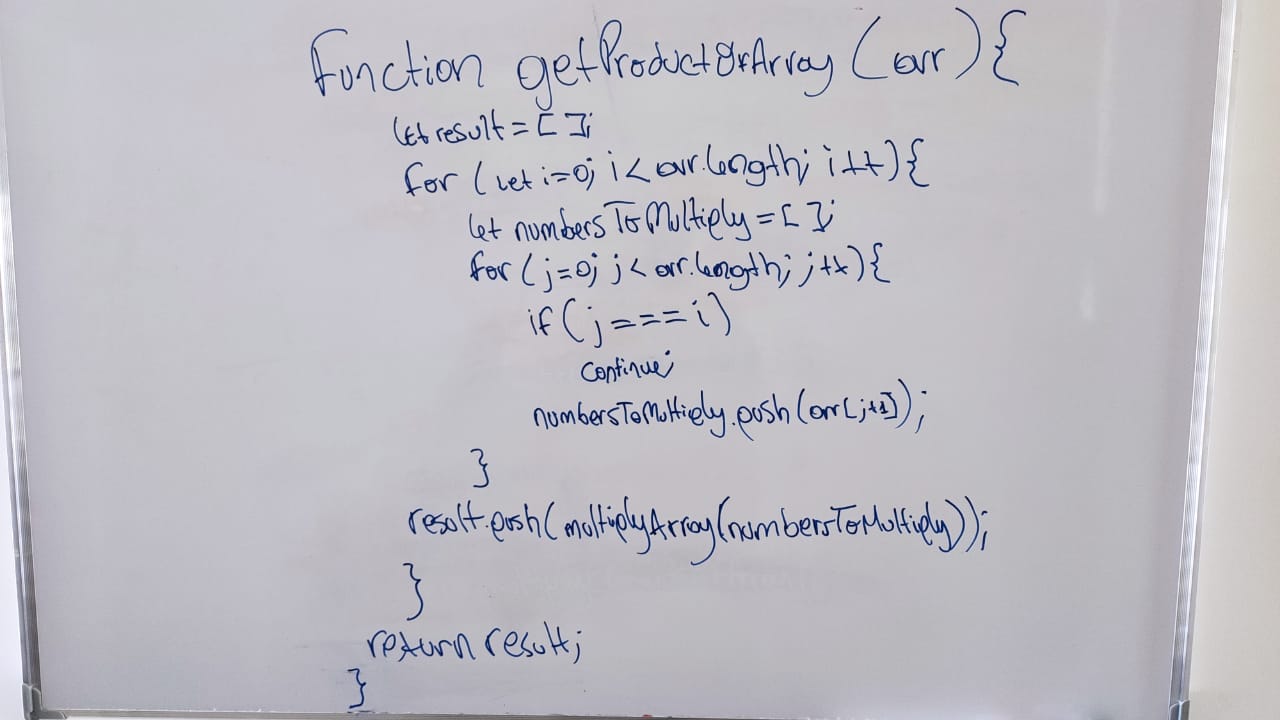 Function getProductOfArray (arr){
let result = [ ];
for (let i=0; i< arr.length; i++){
let numbersToMultiply = [ ];
for (j=0; j< arr.length; j++){
if (j===i)
continue;
numbersToMultiply.push(arr[j+1]);
}
result.push(multiplyArray(numbersToMultiply));
}
return result;
}